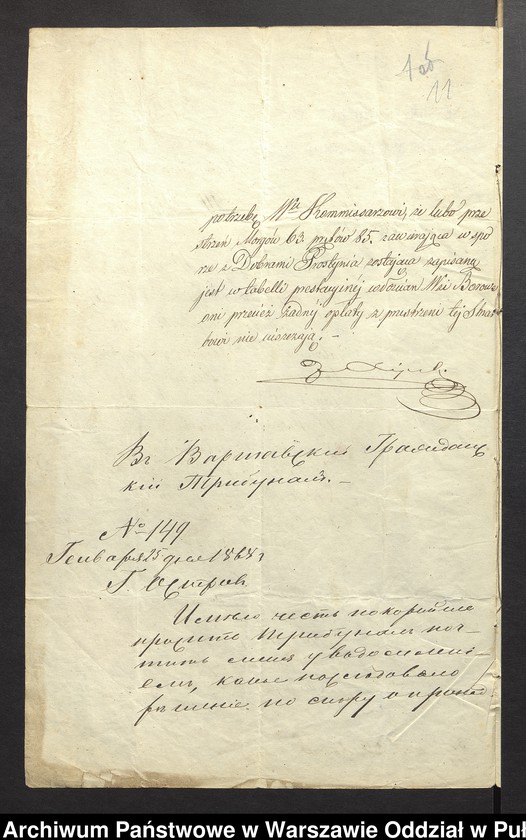 11
potrzebę Wu Kommissarzowi, że lubo prze
strzeń Morgów 63. prętów 85. zawierająca w spo
rze z Dobrami Prostynia zostająca zapisaną
jest w tabelli prestacyjnéj włościan Wsi
oni przecież żadnéj opłaty z przestrzeni téj Skar
bowi nie uiszczają. –
Въ Варшавскій Гражданс
кій Трибуналъ. –
№ 149
Генваря 25 дня 186 г
Г. Островъ
Имѣю честь покорнѣйше
просить Трибуналъ поч–
тить меня увѣдомлені–
емъ, какое послѣдовало
рѣшеніе по спору о
Archiwum Państwowe w Warszawie Oddział w Puł